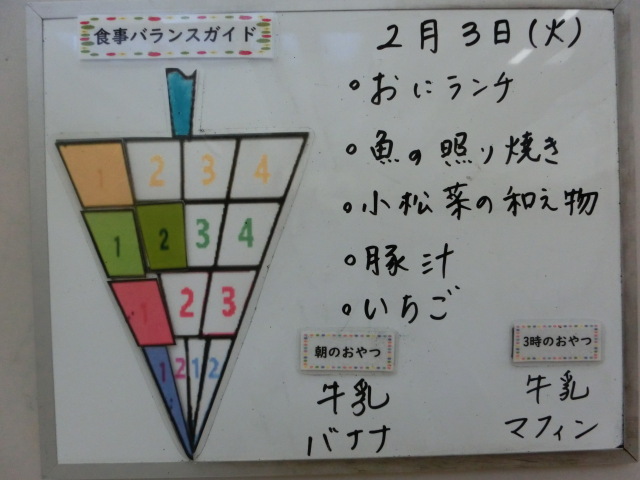 食事バランスガイド
2月3日(火)
おにランチ
魚の照り焼き
小松菜の和え物
豚汁
いちご
1 2 3 4
1 2 3 4
1 2 3
1 2 1 2
朝のおやつ
牛乳
バナナ
3時のおやつ
牛乳
マフィン